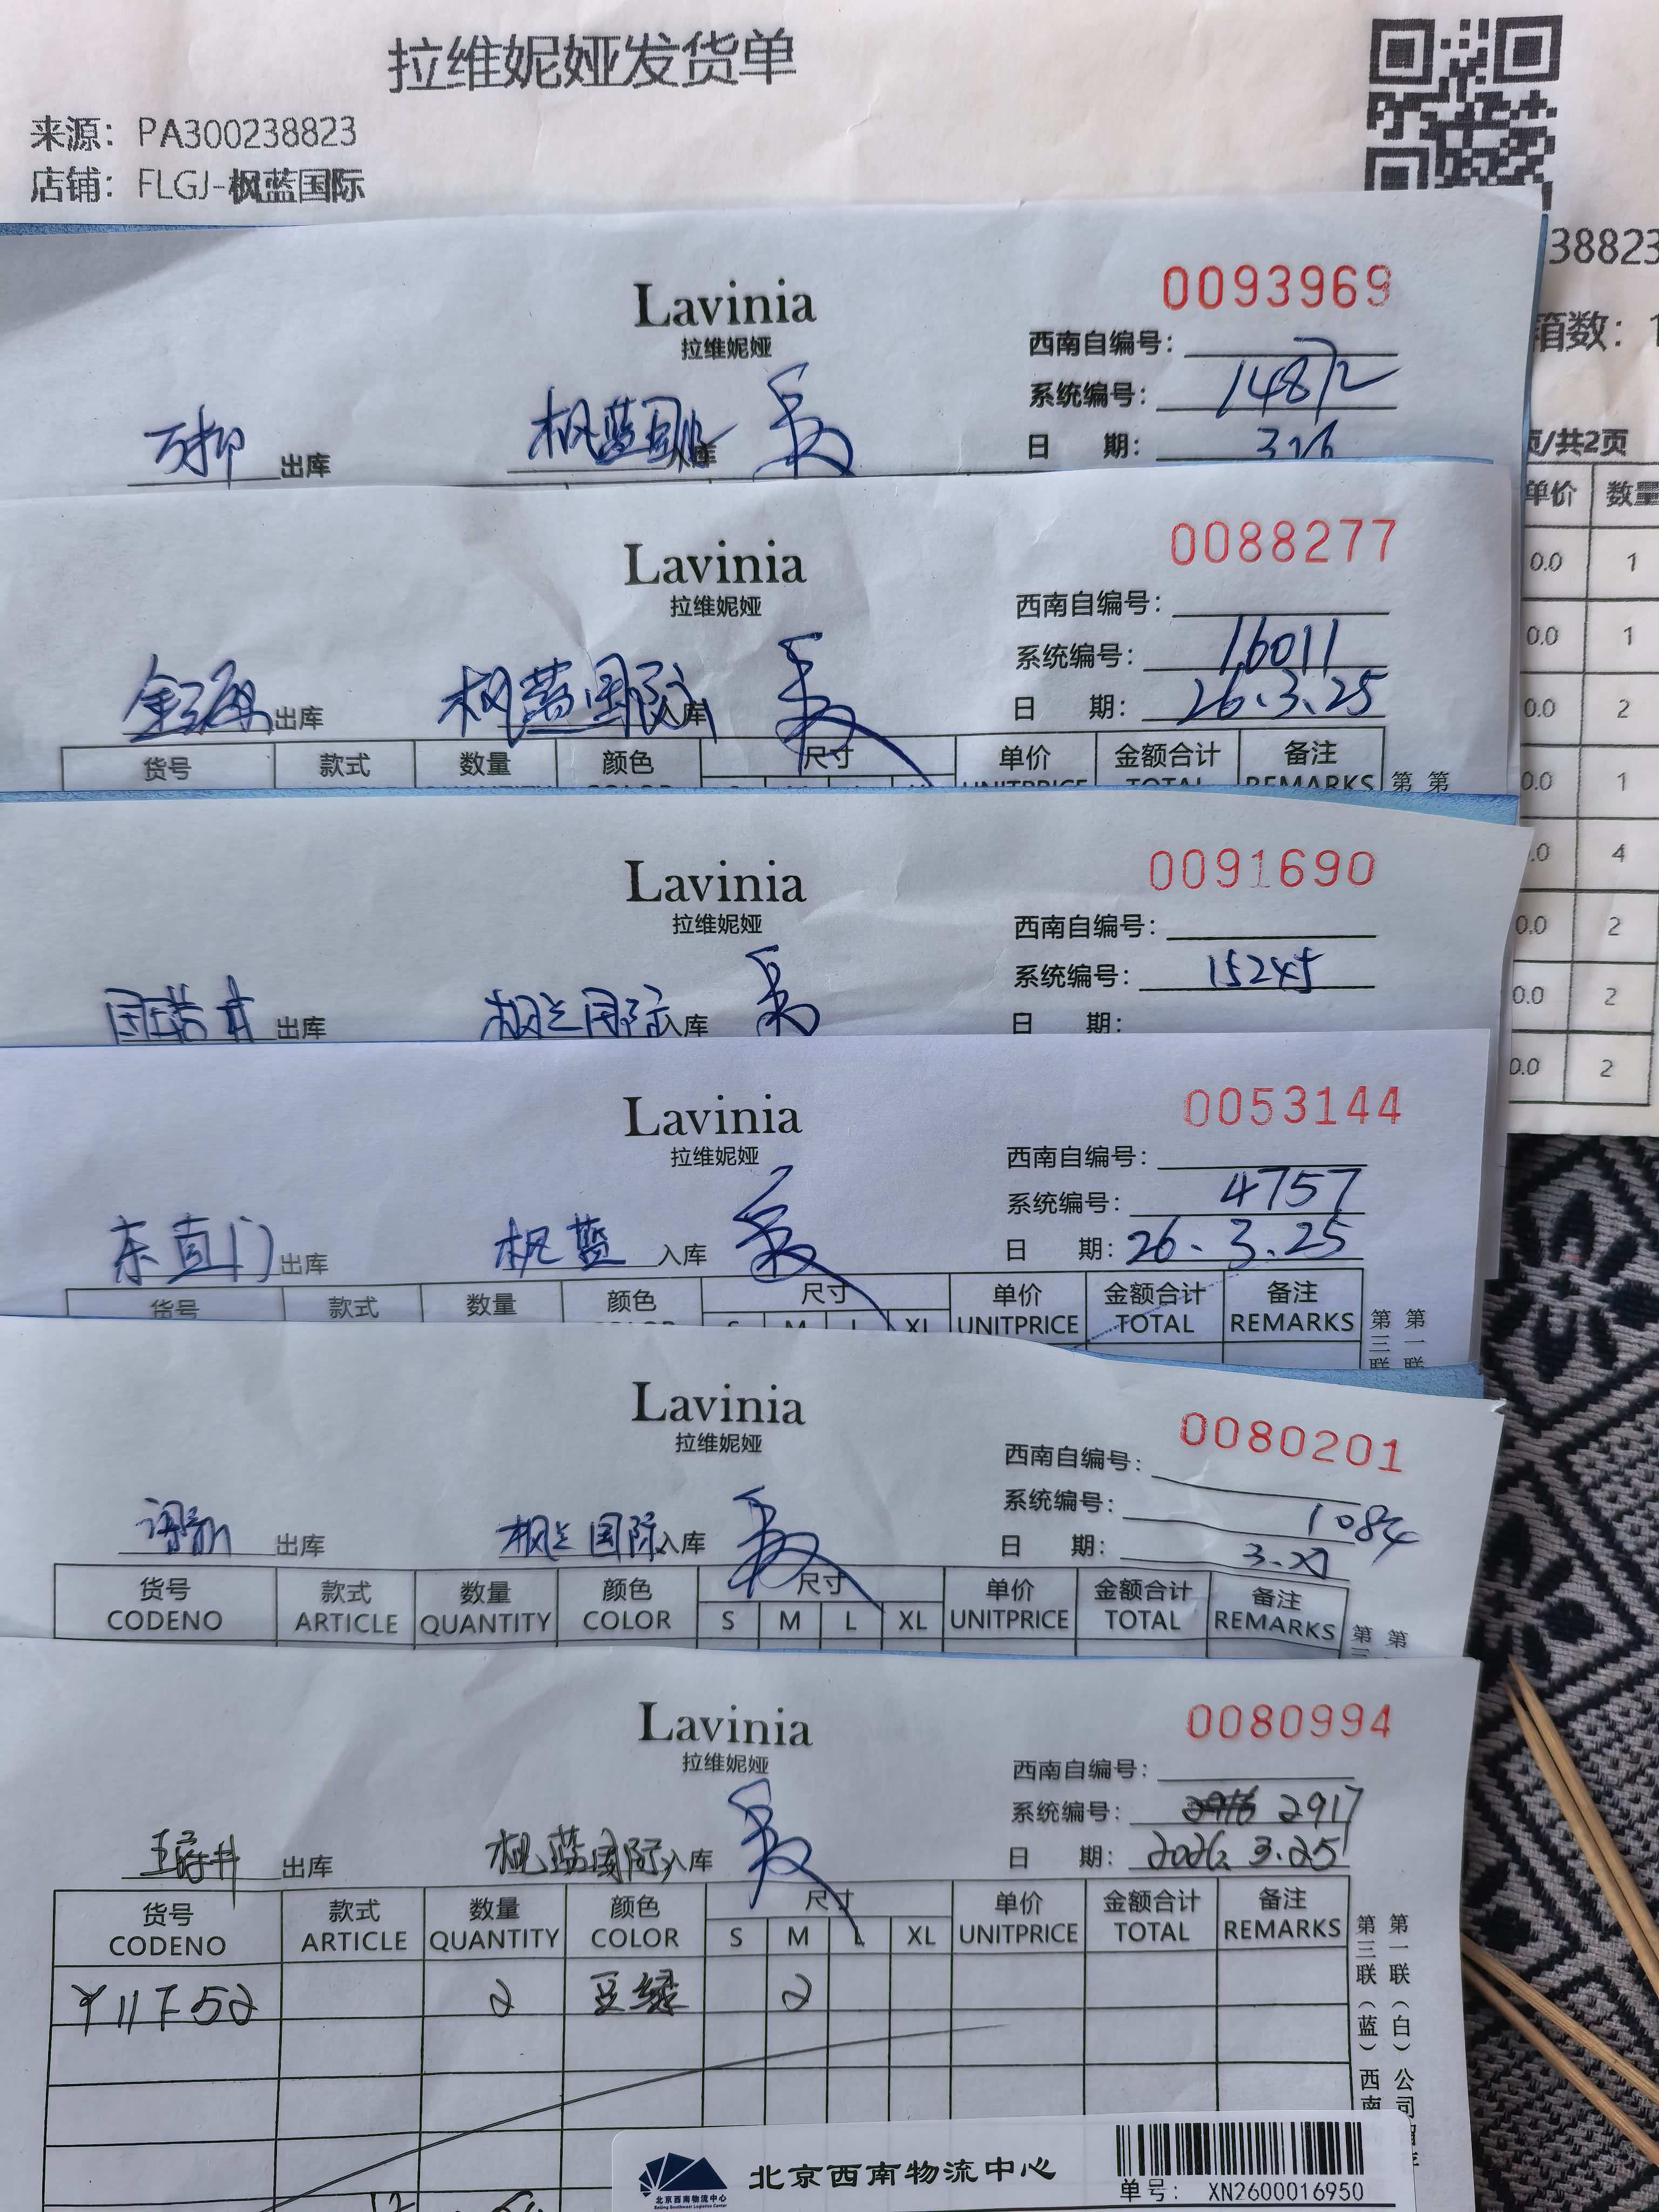 拉维妮娅发货单
来源：PA300238823
店铺：FLGJ-枫蓝国际
38823
箱数：1
页/共2页
单价 数量
0.0 1
0.0 1
0.0 2
0.0 1
.0 4
0.0 2
0.0 2
0.0 2
0093969
Lavinia
拉维妮娅
西南自编号：
系统编号：14872
万柳 出库 枫蓝国际 入库
日 期：3.26
0088277
Lavinia
拉维妮娅
西南自编号：
系统编号：16011
金源 出库 枫蓝国际 入库
日 期：26.3.25
货号 款式 数量 颜色 尺寸 单价 金额合计 备注
UNITPRICE TOTAL REMARKS 第 第
0091690
Lavinia
拉维妮娅
西南自编号：
系统编号：15245
国瑞 出库 枫兰国际 入库
日 期：
0053144
Lavinia
拉维妮娅
西南自编号：
系统编号：4757
东直门 出库 枫蓝 入库
日 期：26.3.25
货号 款式 数量 颜色 尺寸 单价 金额合计 备注
S M L XL UNITPRICE TOTAL REMARKS
第三联 第一联
0080201
Lavinia
拉维妮娅
西南自编号：
系统编号：1084
出库 枫兰国际 入库
日 期：3.27
货号 款式 数量 颜色 尺寸 单价 金额合计 备注
CODENO ARTICLE QUANTITY COLOR S M L XL UNITPRICE TOTAL REMARKS
第三 第
0080994
Lavinia
拉维妮娅
西南自编号：
系统编号：2916 2917
王府井 出库 枫蓝国际 入库
日 期：2026.3.25
货号 款式 数量 颜色 尺寸 单价 金额合计 备注
CODENO ARTICLE QUANTITY COLOR S M L XL UNITPRICE TOTAL REMARKS
Y11F52 2 豆绿 2
第三联（蓝）西南
第一联（白）公司
北京西南物流中心
北京西南物流中心
Beijing Southwest Logistics Center
单号：XN2600016950